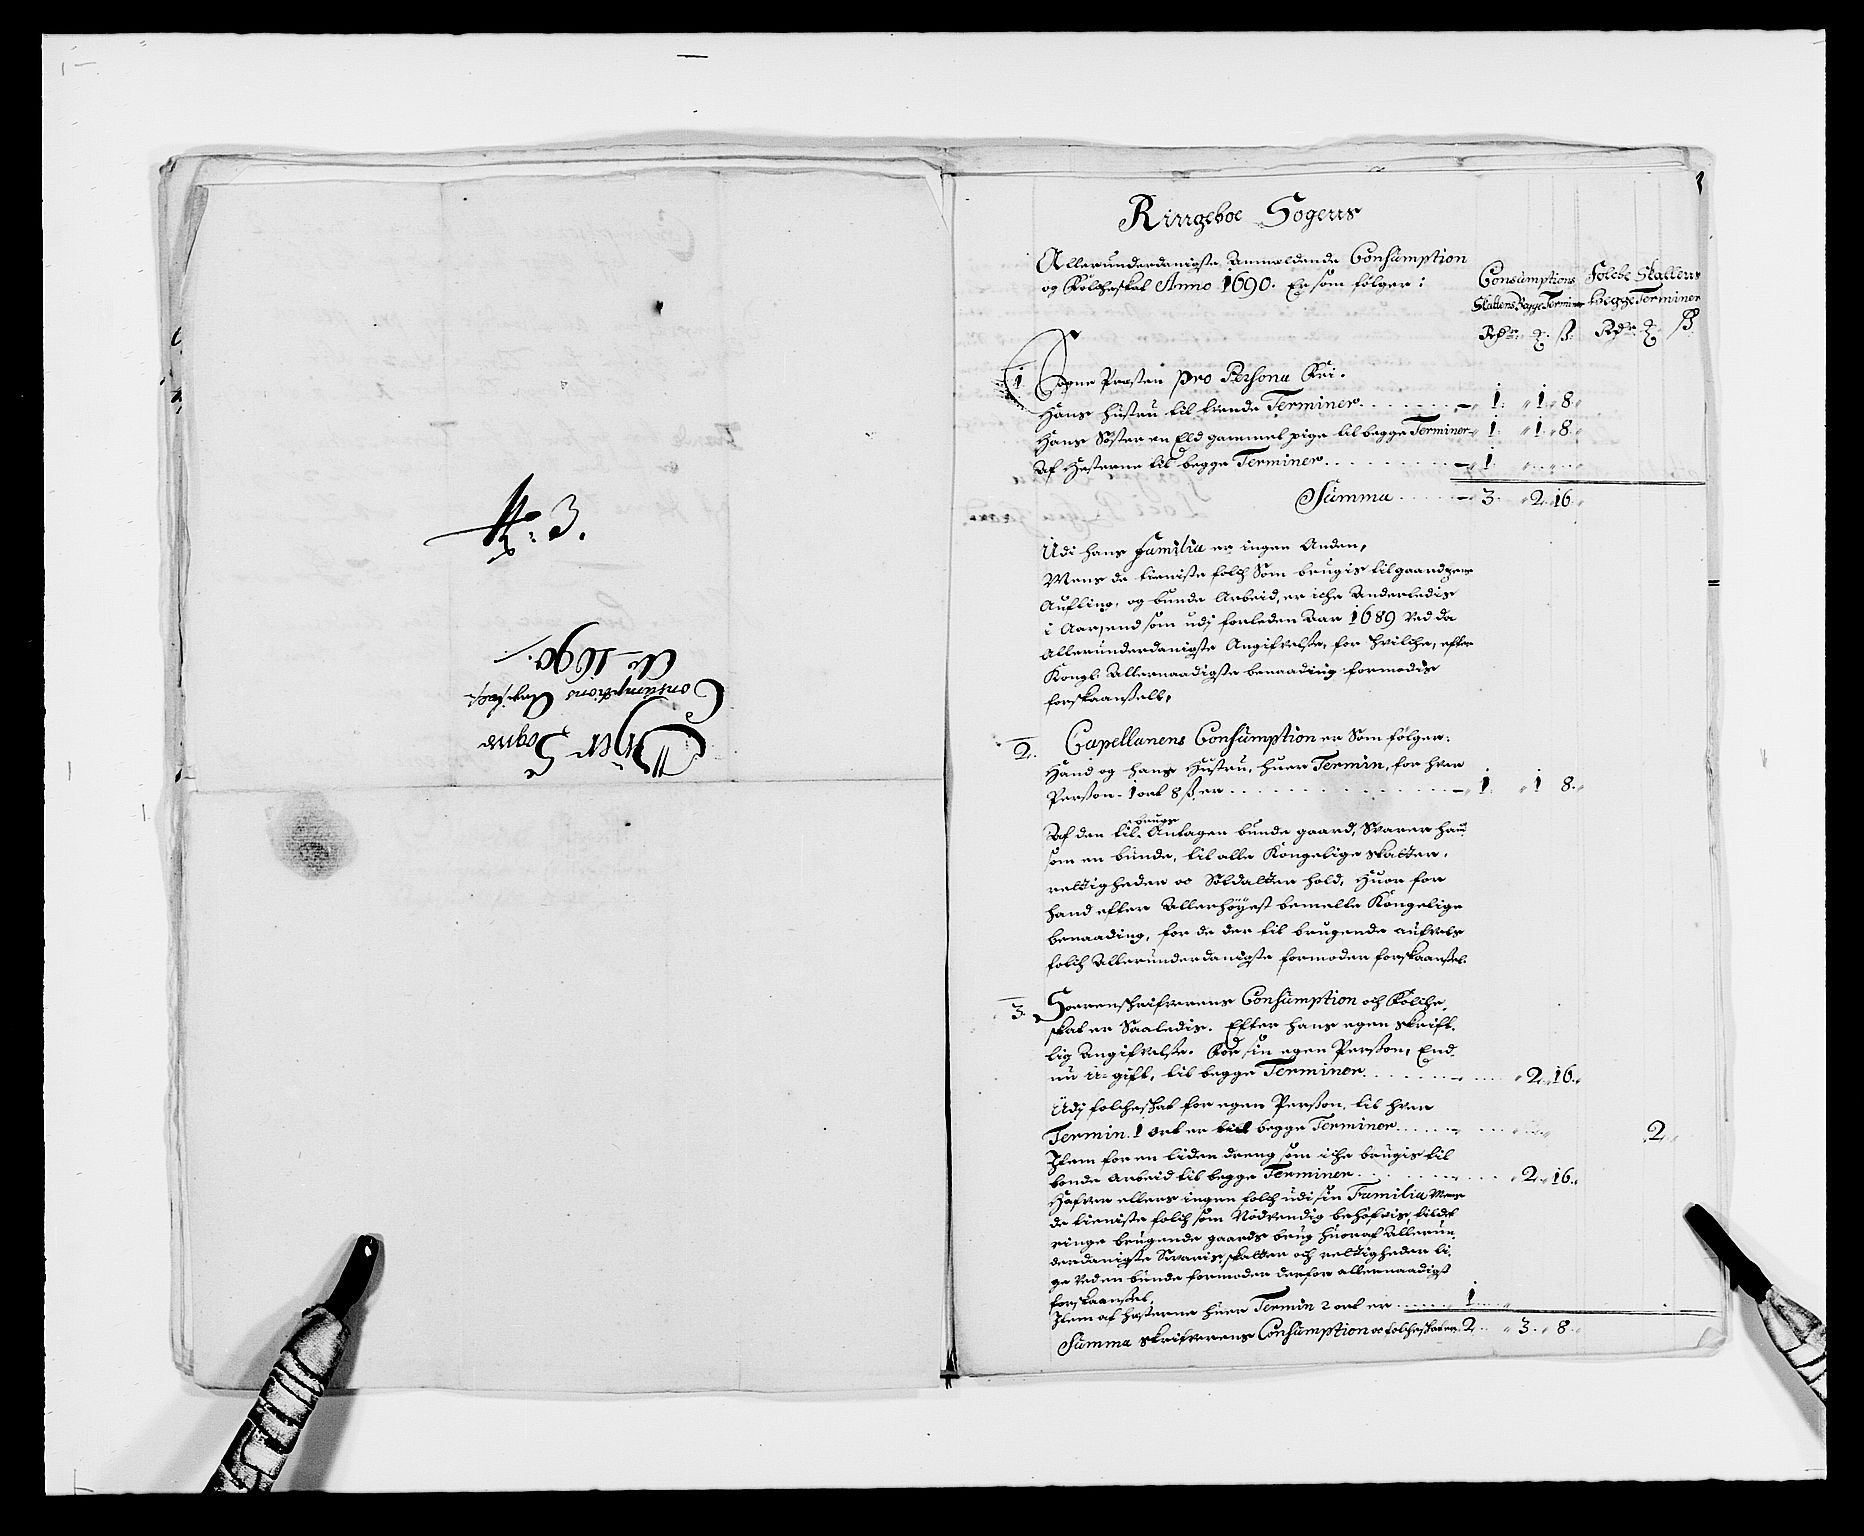 No: 3.
Øyer Sogns
Consumptions
Ao 1690.
Ringeboe Sogens
Allerunderdanigste Anmeldende Consumption
og Folcheskat Anno 1690. Er som følger:
Consumptions Folche Skattens
Skattens Begge Terminer begge Terminer
Rdr: ß: Rdr ß
1. Sogne Presten pro Persona fri.
Hans hustru til tvende Terminer - 1. 1. 8.
Hans Søster en Eld gammel pige til begge Terminer 1. 1. 8.
Af hesterne til begge Terminer - 1
Summa - 3. 2. 16.
Udi hans familia er ingen Anden,
Mens de tieniste folch Som brugis til gaardzens
Aufling, og bunde Arbeid, er iche Anderledis
i Aar, end som udj forleden Aar 1689 Ved da
Allerunderdanigste Angifvelse, for hvilche, efter
Kongl: Allernaadigste benaading formodis
forskaanselt,
2. Capellanens Consumption er Som følger:
Hand og hans Hustru, huer Termin, for hver
Person 1 ort 8 ß er - 1. 1 8.
Af den til brugs Antagen bunde gaard, Svarer hand
som en bunde, til alle Kongelige skatter,
rettigheder oc Soldatter hold, Huor for
hand efter Allerhøyest bemelte Kongelige
benaading, for de der til brugende aufvels
folch Allerunderdanigste formoder forskaansel.
3. Sorenschrifverens Consumption och Folche
skat er Saaledis. Efter hans egen skrift,
lig Angifvelse. For sin egen Person, End
nu u-gift, til begge Terminer 2. 16.
Udj folcheskat for egen Person, til hver
Termin 1 ort er til begge Terminer 2
Item for en liden dreng som iche brugis til
bonde Arbeid til begge Terminer 2. 16.
Hafver ellers ingen folch udi sin Familia Mens
de tieniste folch som Nødvendig behøfvis, til det
ringe brugende gaards brug huoraf Allerun
derdanigste Svaris, skatter och rettigheder li
ge Ved en bunde formoder derfor allernaadigst
forskaansel,
Item af hesterne huer Termin 2 ort er 1
Summa skrifverens Consumption oc folcheskat er 2. 3. 8.